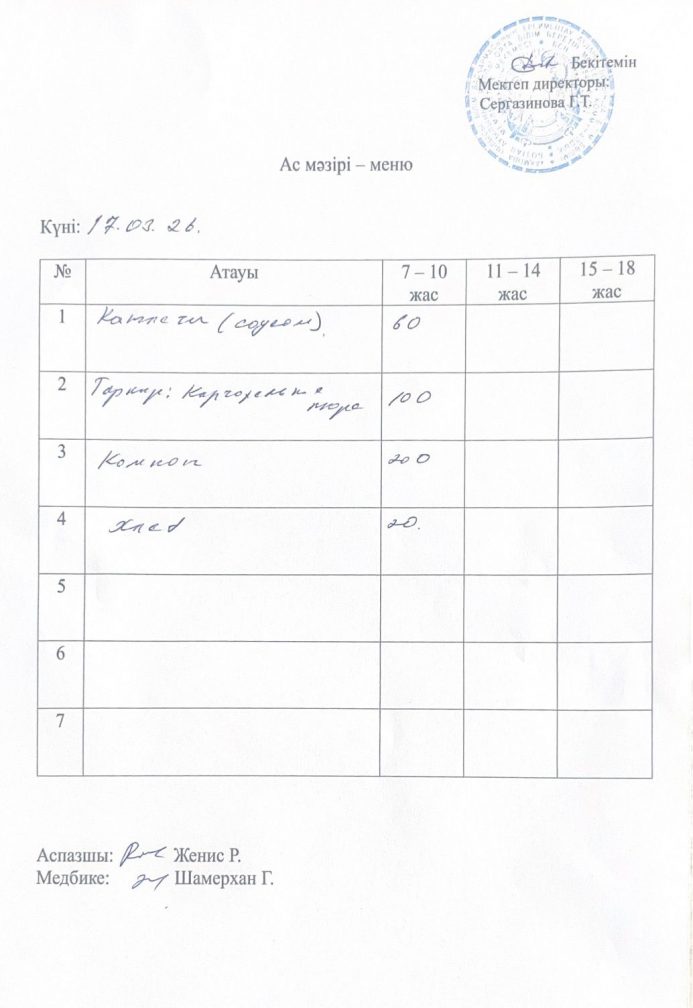 Бекітемін
Мектеп директоры:
Сергазинова Г.Т.
Ас мәзірі – меню
Күні: 17.03.26.
№ Атауы 7 – 10 жас 11 – 14 жас 15 – 18 жас
1 Котлеты (соусом) 60
2 Гарнир: Картофельное пюре 100
3 Компот 200
4 Хлеб 20.
5
6
7
Аспазшы: Женис Р.
Медбике: Шамерхан Г.